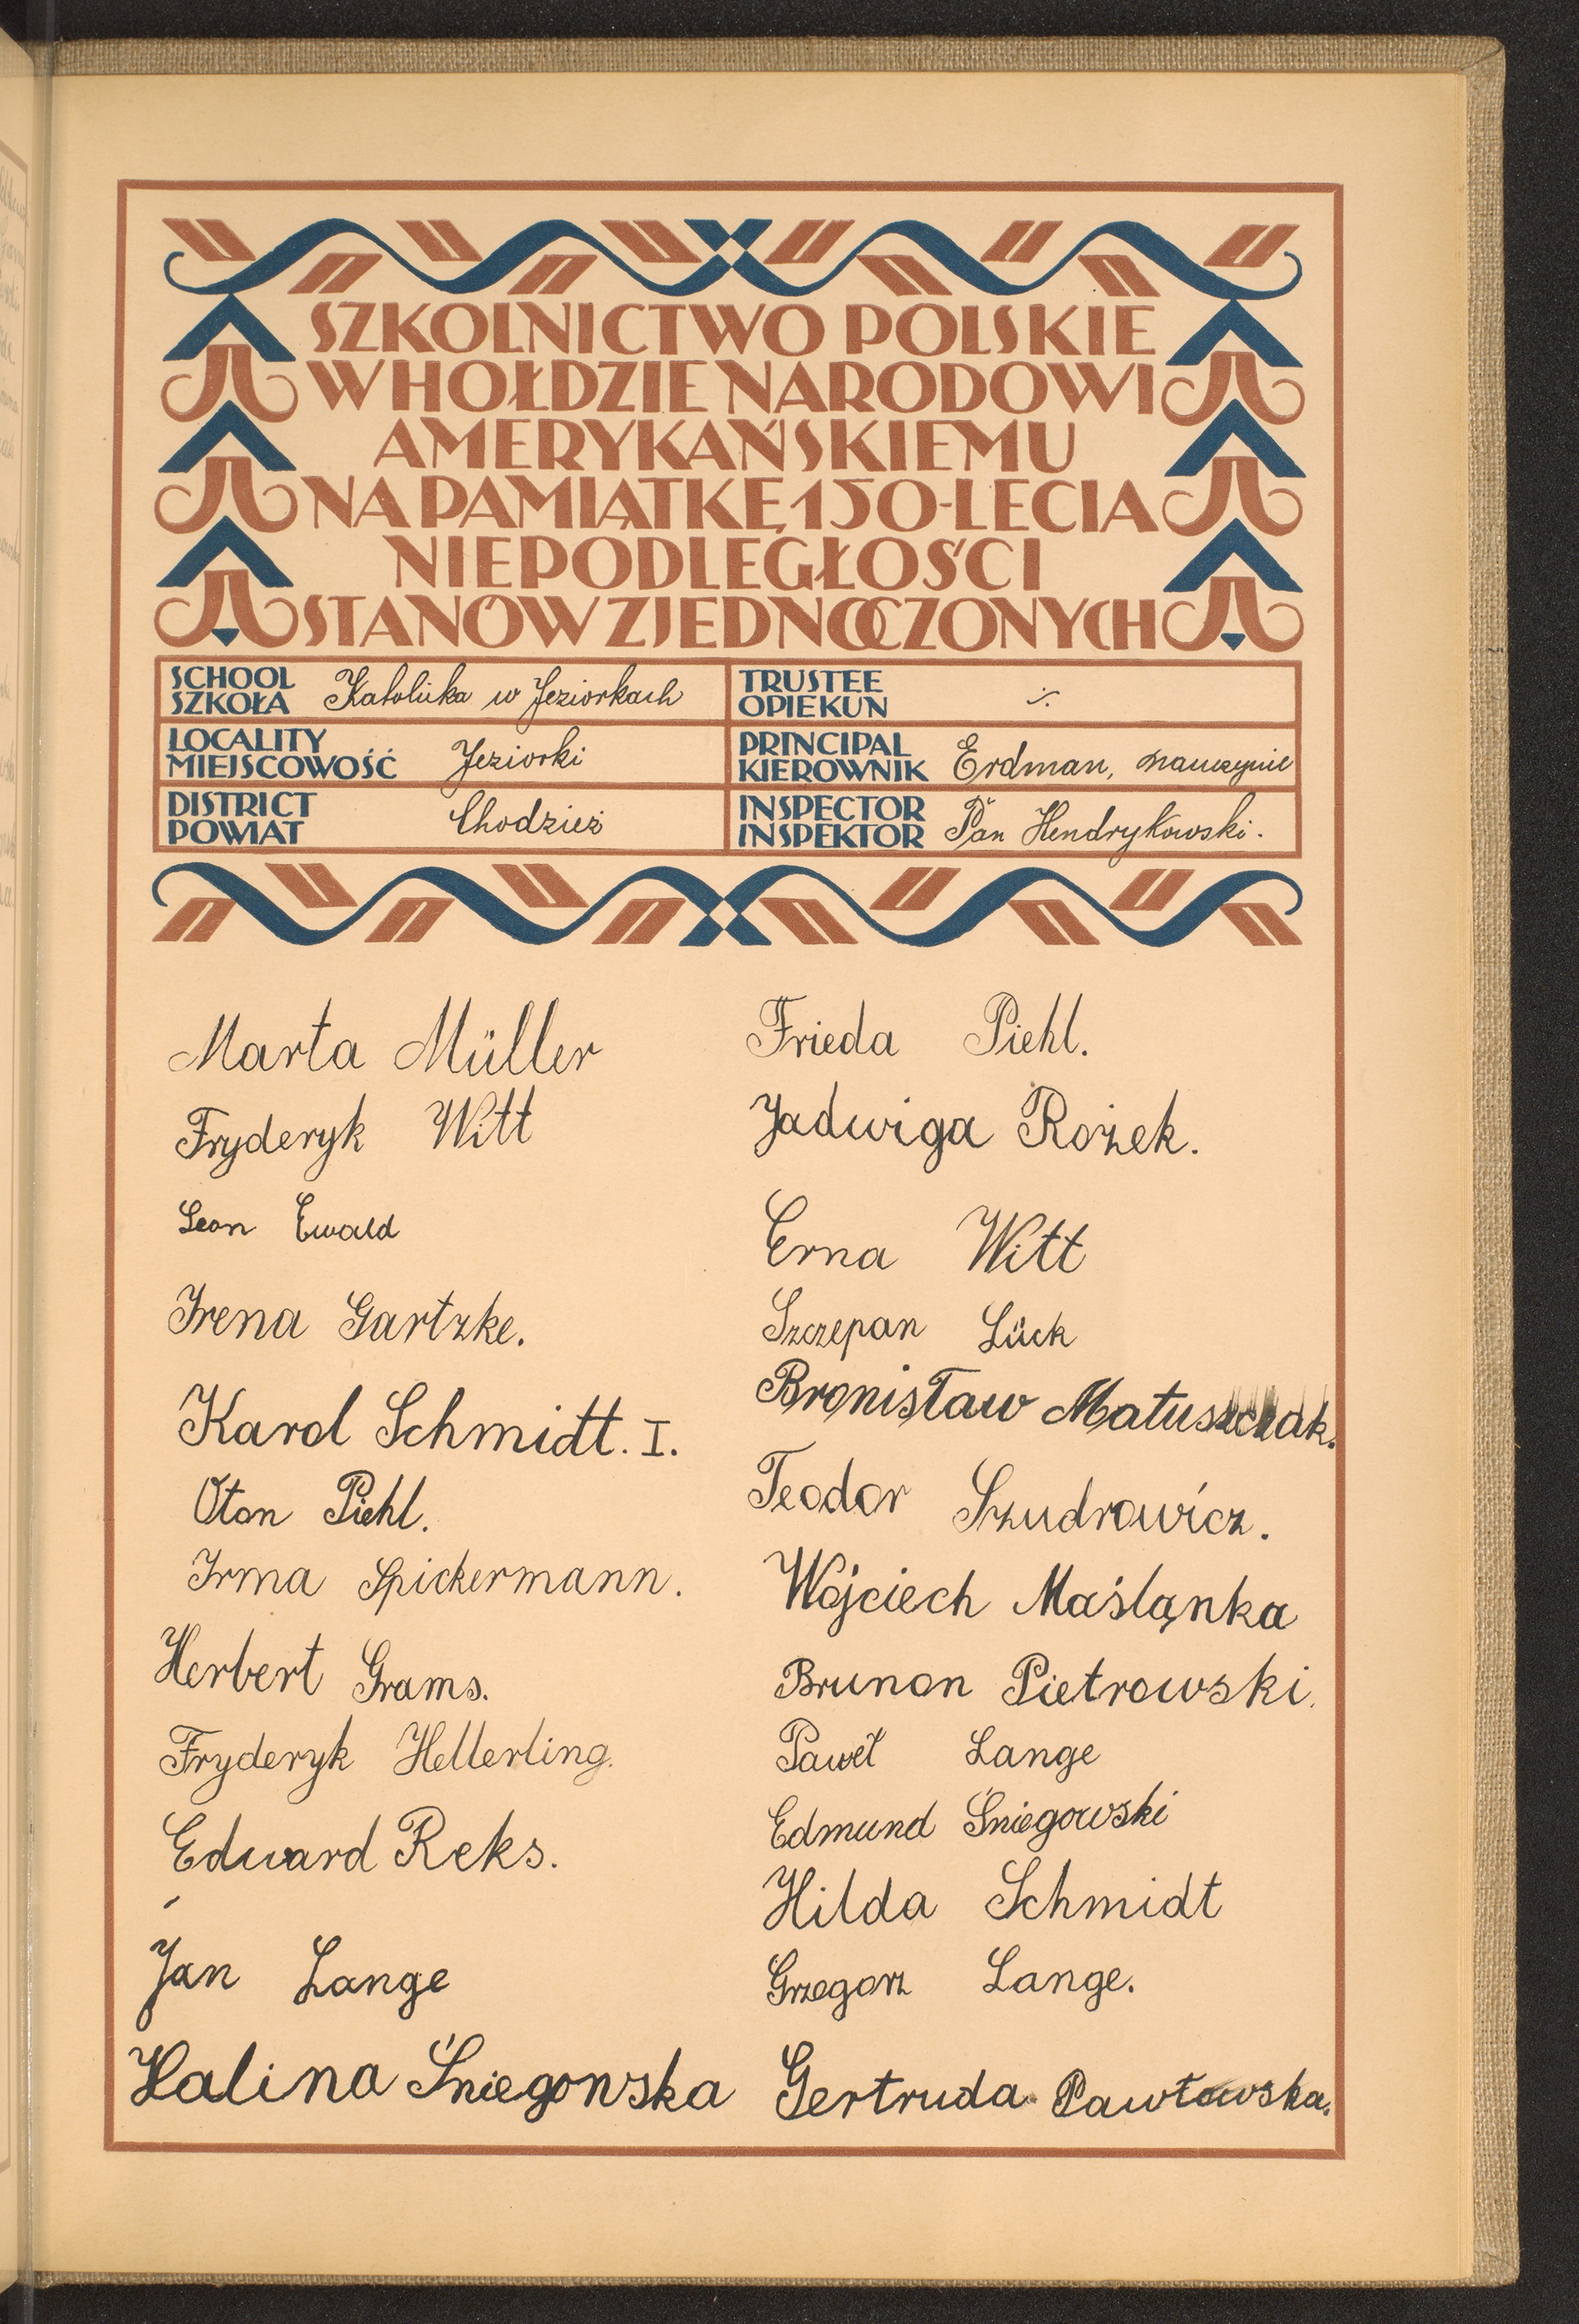 SZKOLNICTWO POLSKIE
W HOŁDZIE NARODOWI
AMERYKAŃSKIEMU
NA PAMIĄTKĘ 150-LECIA
NIEPODLEGŁOŚCI
STANÓW ZJEDNOCZONYCH
SCHOOL
SZKOŁA Katolicka w Jeziorkach
LOCALITY
MIEJSCOWOŚĆ Jeziorki
DISTRICT
POWIAT Chodzież
TRUSTEE
OPIEKUN
PRINCIPAL
KIEROWNIK Erdman, nauczyciel
INSPECTOR
INSPEKTOR Pan Hendrykowski.
Marta Müller
Fryderyk Witt
Leon Ewald
Irena Gartzke.
Karol Schmidt. I.
Oton Piehl.
Irma Spickermann.
Herbert Grams.
Fryderyk Hellerling.
Edward Reks.
Jan Lange
Halina Śniegowska
Frieda Piehl.
Jadwiga Rożek.
Erna Witt
Szczepan Lück
Bronisław Matuszczak.
Teodor Szudrowicz.
Wojciech Maślanka
Brunon Pietrowski.
Paweł Lange
Edmund Śniegowski
Hilda Schmidt
Grzegorz Lange.
Gertruda Pawłowska.